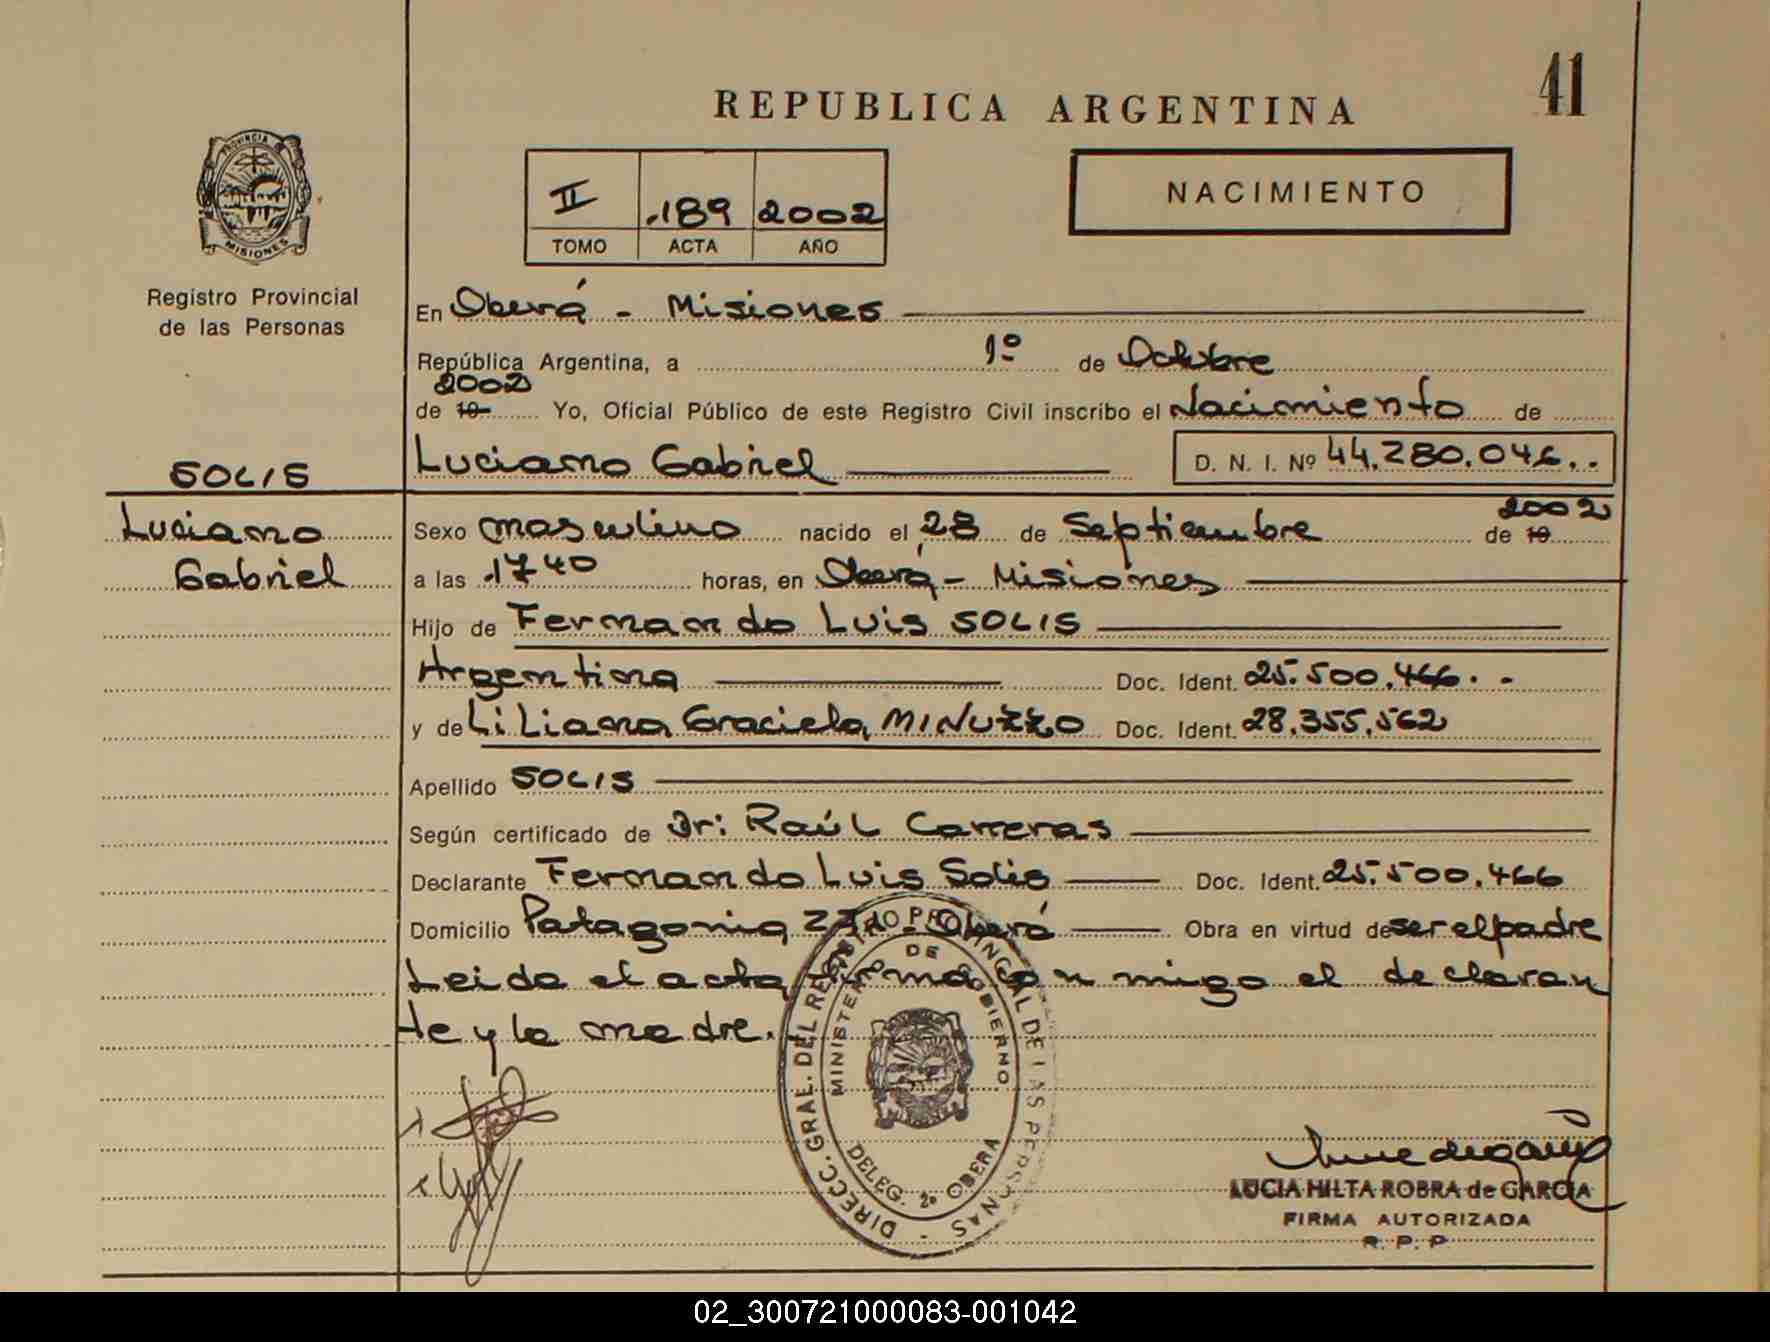 41
REPUBLICA ARGENTINA
PROVINCIA DE
MISIONES
Registro Provincial
de las Personas
II .189 2002
TOMO ACTA AÑO
NACIMIENTO
En Oberá - Misiones
República Argentina, a 1º de Octubre
2002
de 19 Yo, Oficial Público de este Registro Civil inscribo el Nacimiento de
SOLIS
Luciano Gabriel D. N. I. Nº 44.280.046..
Luciano
Gabriel
Sexo masculino nacido el 28 de Septiembre de 19 2002
a las 1740 horas, en Oberá - Misiones
Hijo de Fernando Luis SOLIS
Argentina Doc. Ident. 25.500.466. -
y de Liliana Graciela MINUZZO Doc. Ident. 28.355.562
Apellido SOLIS
Según certificado de Dr: Raúl Carreras
Declarante Fernando Luis Solis Doc. Ident. 25.500.466
Domicilio Patagonia - Oberá Obra en virtud de ser el padre
Leida el acta firma con migo el declaran
te y la madre.
DIRECC. GRAL. DEL REGISTRO PROVINCIAL DE LAS PERSONAS
MINISTERIO DE GOBIERNO
DELEG. 2º OBERA
LUCIA HILTA ROBRA de GARCIA
FIRMA AUTORIZADA
R. P. P
02_300721000083-001042